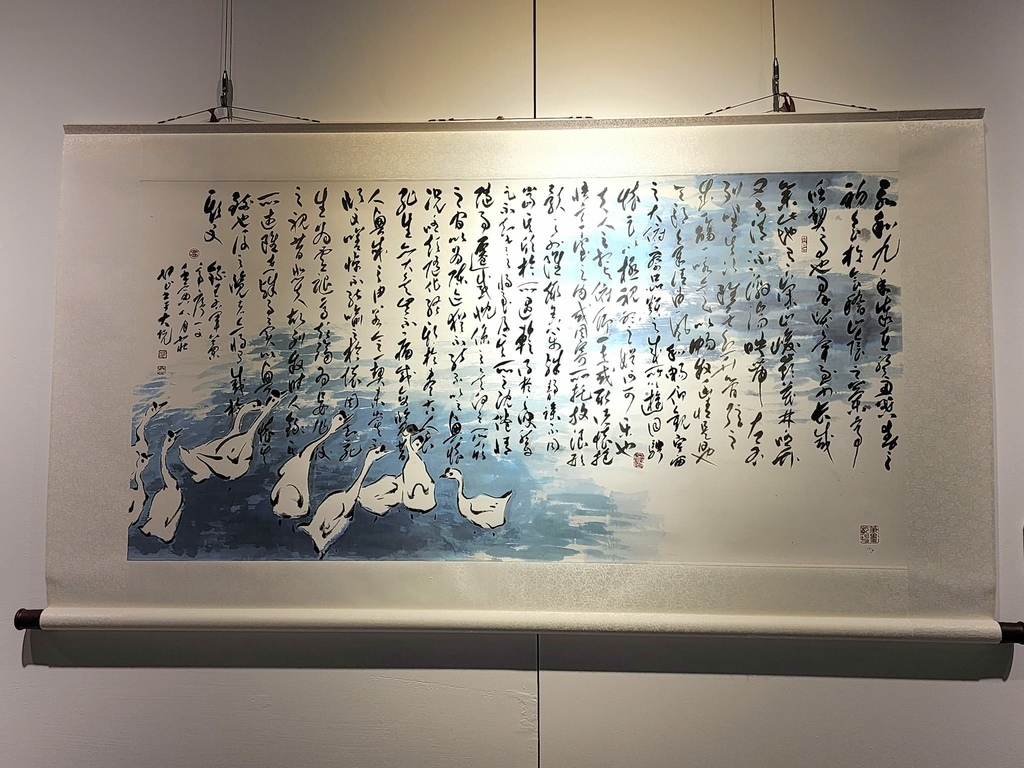 永和九年歲在癸丑暮春之
初會於會稽山陰之蘭亭
脩禊事也羣賢畢至少長咸
集此地有崇山峻領茂林脩竹
又有清流激湍映帶左右
列坐其次雖無絲竹管弦之
盛一觴一詠亦足以暢敘幽情是日也
天朗氣清惠風和暢仰觀宇宙
之大俯察品類之盛所以遊目騁
懷足以極視聽之娛信可樂也
夫人之相與俯仰一世或取諸懷抱
悟言一室之內或因寄所託放浪形
骸之外雖趣舍萬殊靜躁不同
當其欣於所遇暫得於己快然
自足不知老之將至及其所之既惓情
隨事遷感慨係之矣向之所欣
之間以為陳迹猶不能不以之興懷
況脩短隨化終期於盡古人云
死生亦大矣豈不痛哉每覽昔
人興感之由若合一契未嘗不臨
文嗟悼不能喻之於懷固知一死
生為虛誕齊彭殤為妄作後
之視昔悲夫故列敘時人錄其
所述雖世殊事異所以興懷其
致一也後之覽者亦將有感於
斯文
錄王右軍蘭
亭序一文
八月莊